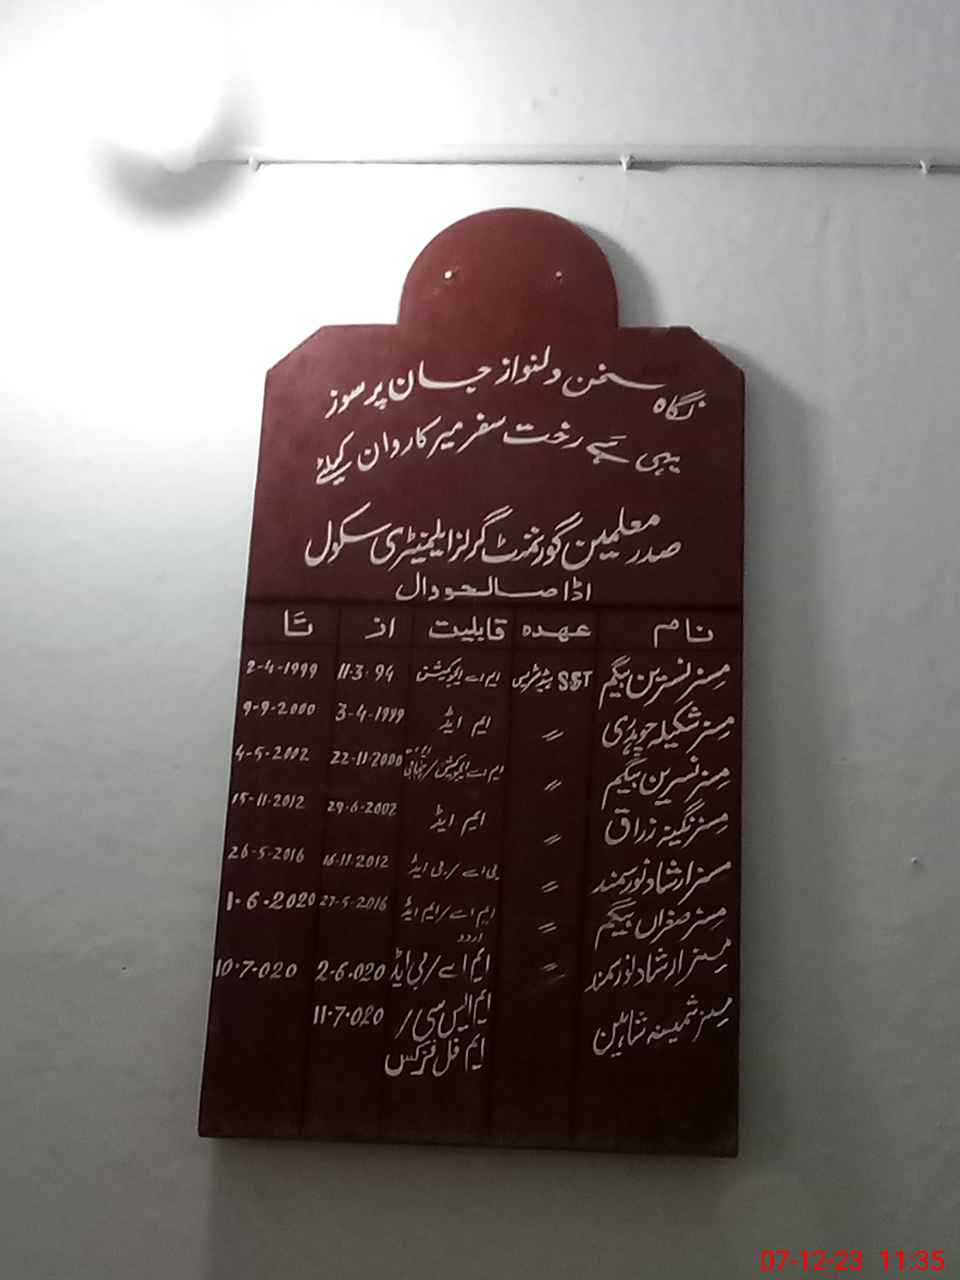 نگاہ سخن دلنواز جان پرسوز
یہی ہے رخت سفر میر کارواں کیلئے
صدر معلمین گورنمنٹ گرلز ایلیمنٹری سکول
اڈا صالحووال
نام عہدہ قابلیت از تا
مسز نسرین بیگم SST ہیڈمسٹریس ایم اے ایجوکیشن 11-3-94 2-4-1999
مسز شکیلہ چوہدری 〃 ایم ایڈ 3-4-1999 9-9-2000
مسز نسرین بیگم 〃 ایم اے ایجوکیشن/پنجابی 22-11-2000 4-5-2002
مسز نگینہ زراق 〃 ایم ایڈ 29-6-2002 15-11-2012
مسز ارشاد نورسمند 〃 بی اے/بی ایڈ 16-11-2012 26-5-2016
مسز صغراں بیگم 〃 ایم اے/ایم ایڈ 27-5-2016 1-6-2020
اردو
مسز ارشاد نورسمند 〃 ایم اے/بی ایڈ 2-6-020 10-7-020
مسز ثمینہ شاہین ایم ایس سی/ 11-7-020
ایم فل فزکس
07-12-23 11:35